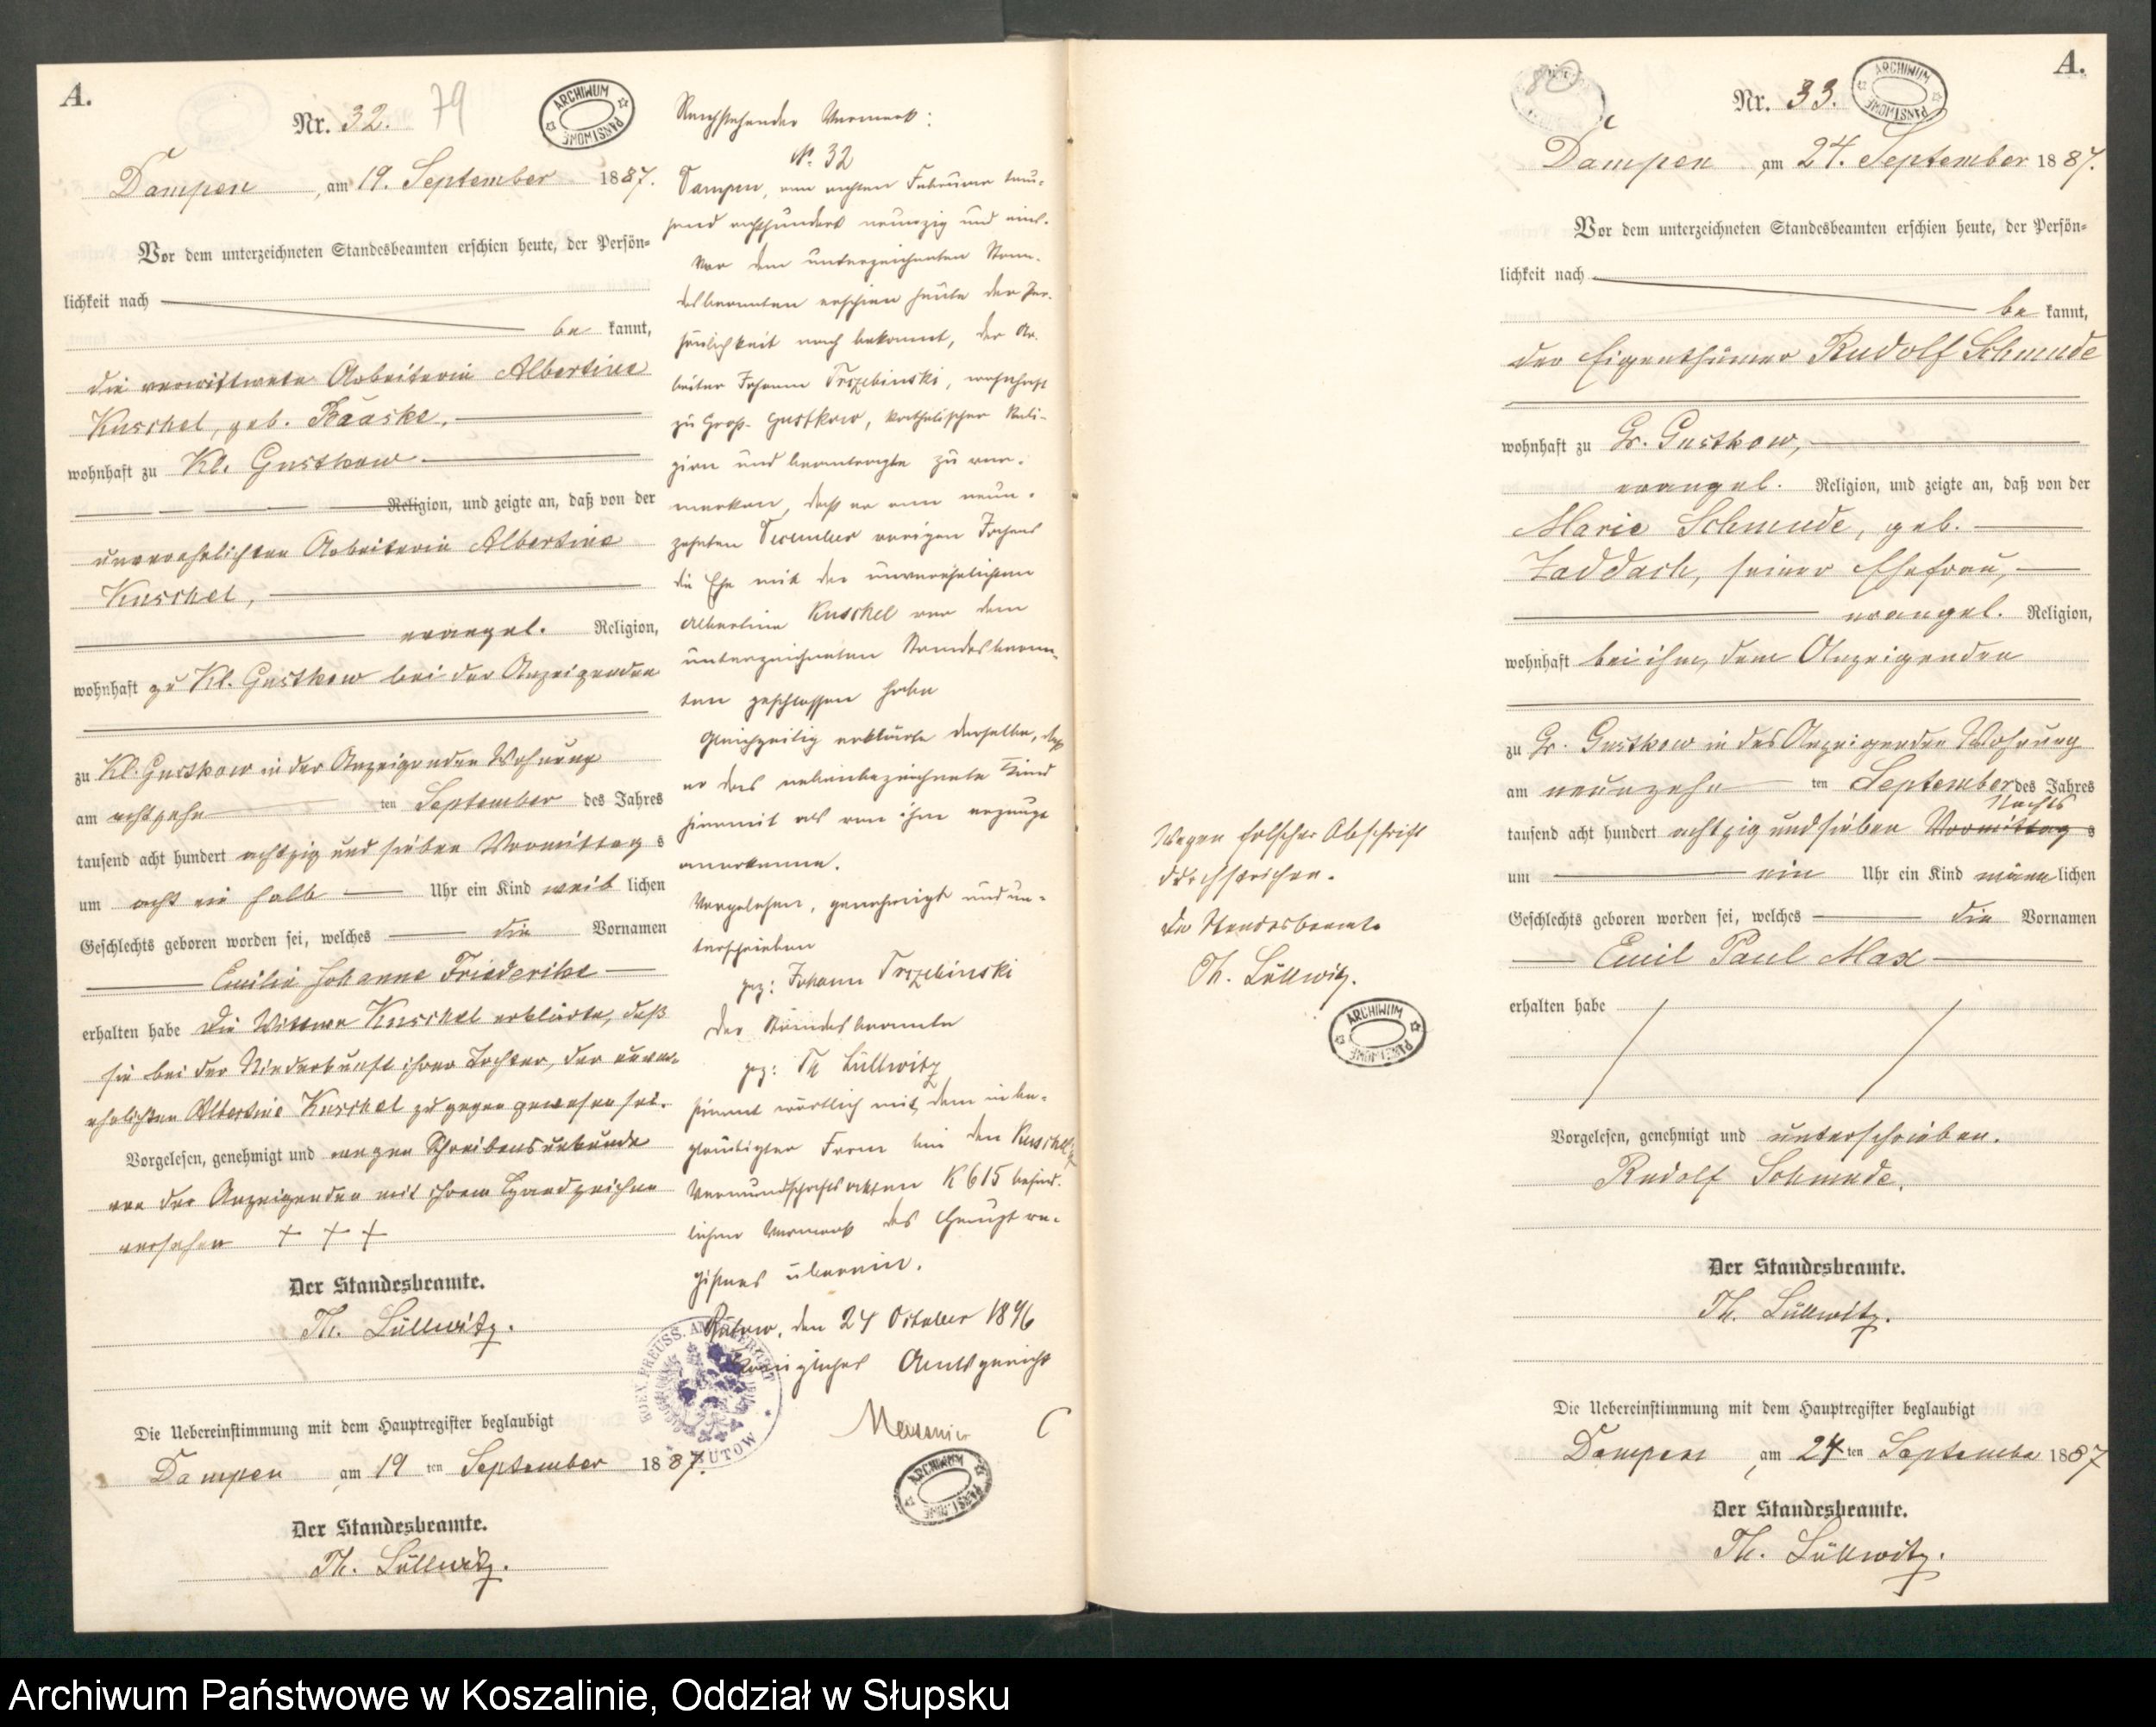 A.
Nr. 32.
79
ARCHIWUM PAŃSTWOWE
Dampen, am 19. September 1887.
Vor dem unterzeichneten Standesbeamten erschien heute, der Persön=
lichkeit nach
be kannt,
die verwittwete Arbeiterin Albertine
Kuschel, geb. Baaske,
wohnhaft zu Kl. Gustkow
Religion, und zeigte an, daß von der
unverehelichten Arbeiterin Albertine
Kuschel,
evangel. Religion,
wohnhaft zu Kl. Gustkow bei der Anzeigenden
zu Kl. Gustkow in der Anzeigenden Wohnung
am achtzehn ten September des Jahres
tausend acht hundert achtzig und sieben Vormittag s
um acht ein halb Uhr ein Kind weib lichen
Geschlechts geboren worden sei, welches die Vornamen
Emilie Johanne Friederike
erhalten habe Die Wittwe Kuschel erklärte, daß
sie bei der Niederkunft ihrer Tochter, der unver-
ehelichten Albertine Kuschel zugegen gewesen sei.
Vorgelesen, genehmigt und wegen Schreibensunkunde
von der Anzeigenden mit ihrem Handzeichen
versehen + + +
Der Standesbeamte.
Th. Lüllwitz.
Die Uebereinstimmung mit dem Hauptregister beglaubigt
Dampen am 19 ten September 1887.
Der Standesbeamte.
Th. Lüllwitz.
Nachstehender Vermerk:
No. 32
Dampen, am achten Februar tau-
send achthundert neunzig und eins.
Vor dem unterzeichneten Stan-
desbeamten erschien heute der Per-
sönlichkeit nach bekannt, der Ar-
beiter Johann Trzebinski, wohnhaft
zu Groß-Gustkow, katholischer Reli-
gion und beantragte zu ver-
merken, daß er am neun-
zehnten December vorigen Jahres
die Ehe mit der unverehelichten
Albertine Kuschel vor dem
unterzeichneten Standesbeam-
ten geschlossen habe
Gleichzeitig erklärte derselbe, daß
er das nebenbezeichnete Kind
hiermit als von ihm erzeugt
anerkenne.
Vorgelesen, genehmigt und un-
terschrieben
gez: Johann Trzebinski
Der Standesbeamte
gez: Th Lüllwitz
stimmt wörtlich mit dem in be-
glaubigter Form bei den Kuschel
Vormundschaftsakten K 615 befind-
lichen Vermerk des Hauptre-
gisters überein.
Bütow, den 24 October 1896
Königliches Amtsgericht
KOEN. PREUSS. AMTSGERICHT * BUTOW *
ARCHIWUM PAŃSTWOWE
Wegen falscher Abschrift
durchstrichen.
Der Standesbeamte
Th. Lüllwitz.
ARCHIWUM PAŃSTWOWE
80
A.
Nr. 33.
ARCHIWUM PAŃSTWOWE
Dampen am 24. September 1887.
Vor dem unterzeichneten Standesbeamten erschien heute, der Persön=
lichkeit nach
be kannt,
der Eigenthümer Rudolf Schmude
wohnhaft zu Gr. Gustkow,
evangel. Religion, und zeigte an, daß von der
Marie Schmude, geb.
Zaddach, seiner Ehefrau,
evangel. Religion,
wohnhaft bei ihm, dem Anzeigenden
zu Gr. Gustkow in des Anzeigenden Wohnung
am neunzehn ten September des Jahres
Nachts
tausend acht hundert achtzig und sieben Vormittag s
um ein Uhr ein Kind männ lichen
Geschlechts geboren worden sei, welches die Vornamen
Emil Paul Max
erhalten habe
Vorgelesen, genehmigt und unterschrieben.
Rudolf Schmude.
Der Standesbeamte.
Th. Lüllwitz.
Die Uebereinstimmung mit dem Hauptregister beglaubigt
Dampen, am 24 ten September 1887
Der Standesbeamte.
Th. Lüllwitz.
Archiwum Państwowe w Koszalinie, Oddział w Słupsku